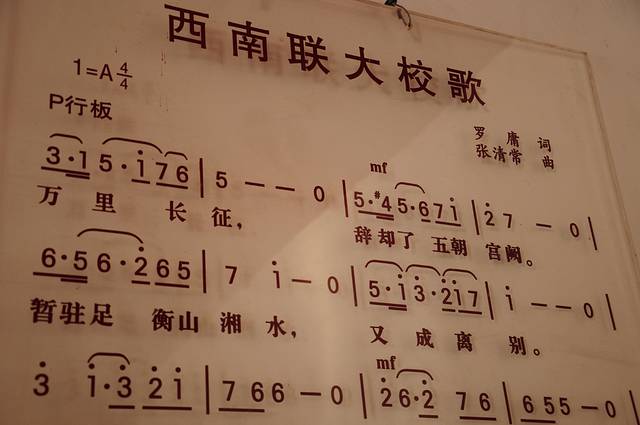 西南联大校歌
1=A 4/4
P行板
罗庸 词
张清常 曲
mf
3·1 5·i 7 6 | 5 — — 0 | 5·#4 5·6 7 i | 2 7 — 0 |
万里长征, 辞却了五朝宫阙。
6·5 6·2 6 5 | 7 i — 0 | 5·i 3·2 i 7 | i — — 0 |
暂驻足衡山湘水, 又成离别。
mf
3 i·3 2 i | 7 6 6 — 0 | 2 6·2 7 6 | 6 5 5 — 0 |